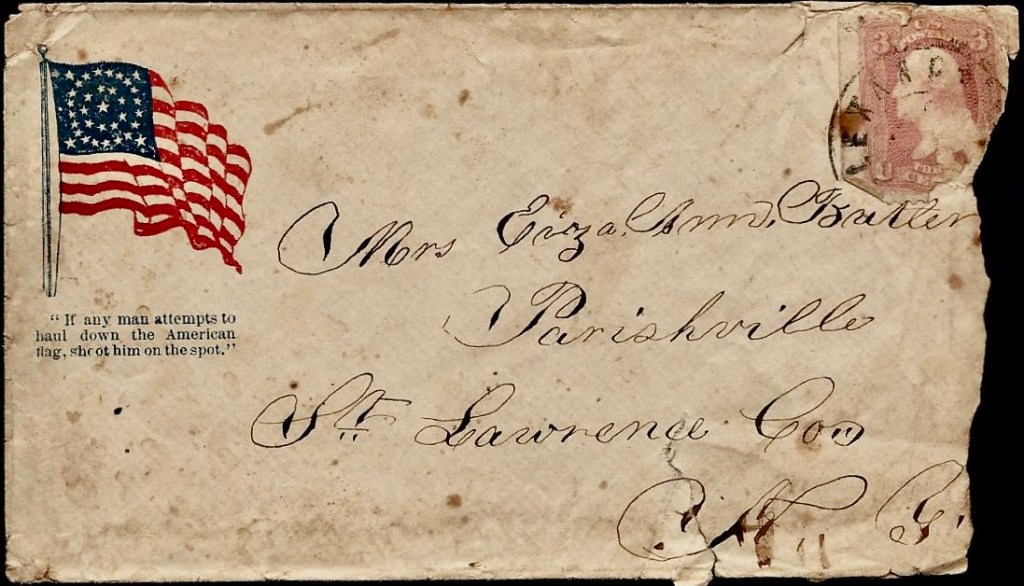 3 U.S. 3
ALEXAND
"If any man attempts to
haul down the American
flag, shoot him on the spot."
Mrs Eliza Ann Butler
Parishville
St. Lawrence Co
N Y